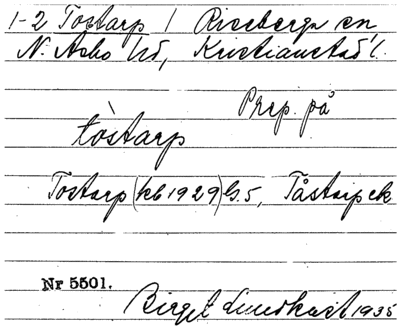 1-2 Tostarp / Riseberga sn,
N. Åsbo hd, Kristianstad l.
Prep. på
tòstarp
Tostarp (kb 1929) G. 5, Tåstarp ek
Nr 5501.
Birger Lundkvist 1935